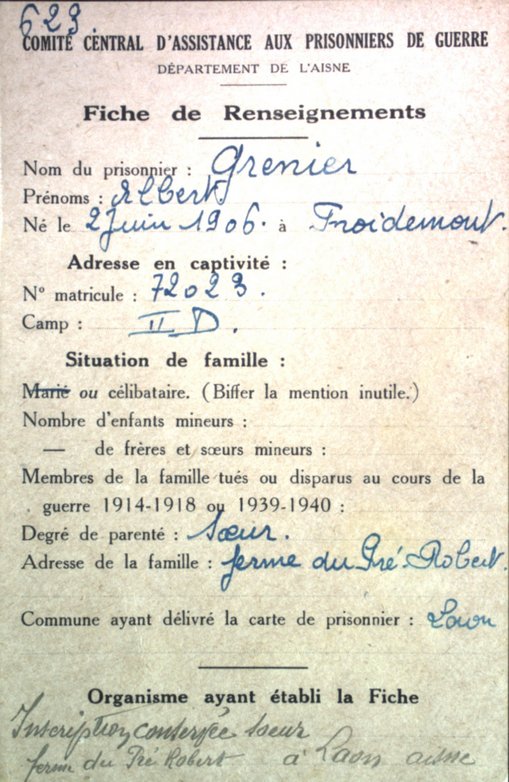 623
COMITÉ CENTRAL D'ASSISTANCE AUX PRISONNIERS DE GUERRE
DÉPARTEMENT DE L'AISNE
Fiche de Renseignements
Nom du prisonnier : Grenier
Prénoms : Albert
Né le 2 Juin 1906. à Froidemont.
Adresse en captivité :
N° matricule : 72023.
Camp : II D.
Situation de famille :
Marié ou célibataire. (Biffer la mention inutile.)
Nombre d'enfants mineurs :
— de frères et sœurs mineurs :
Membres de la famille tués ou disparus au cours de la
guerre 1914-1918 ou 1939-1940 :
Degré de parenté : Sœur.
Adresse de la famille : ferme du Pré-Robert.
Commune ayant délivré la carte de prisonnier : Laon
Organisme ayant établi la Fiche
Inscription soeur
ferme du Pré Robert à Laon aisne